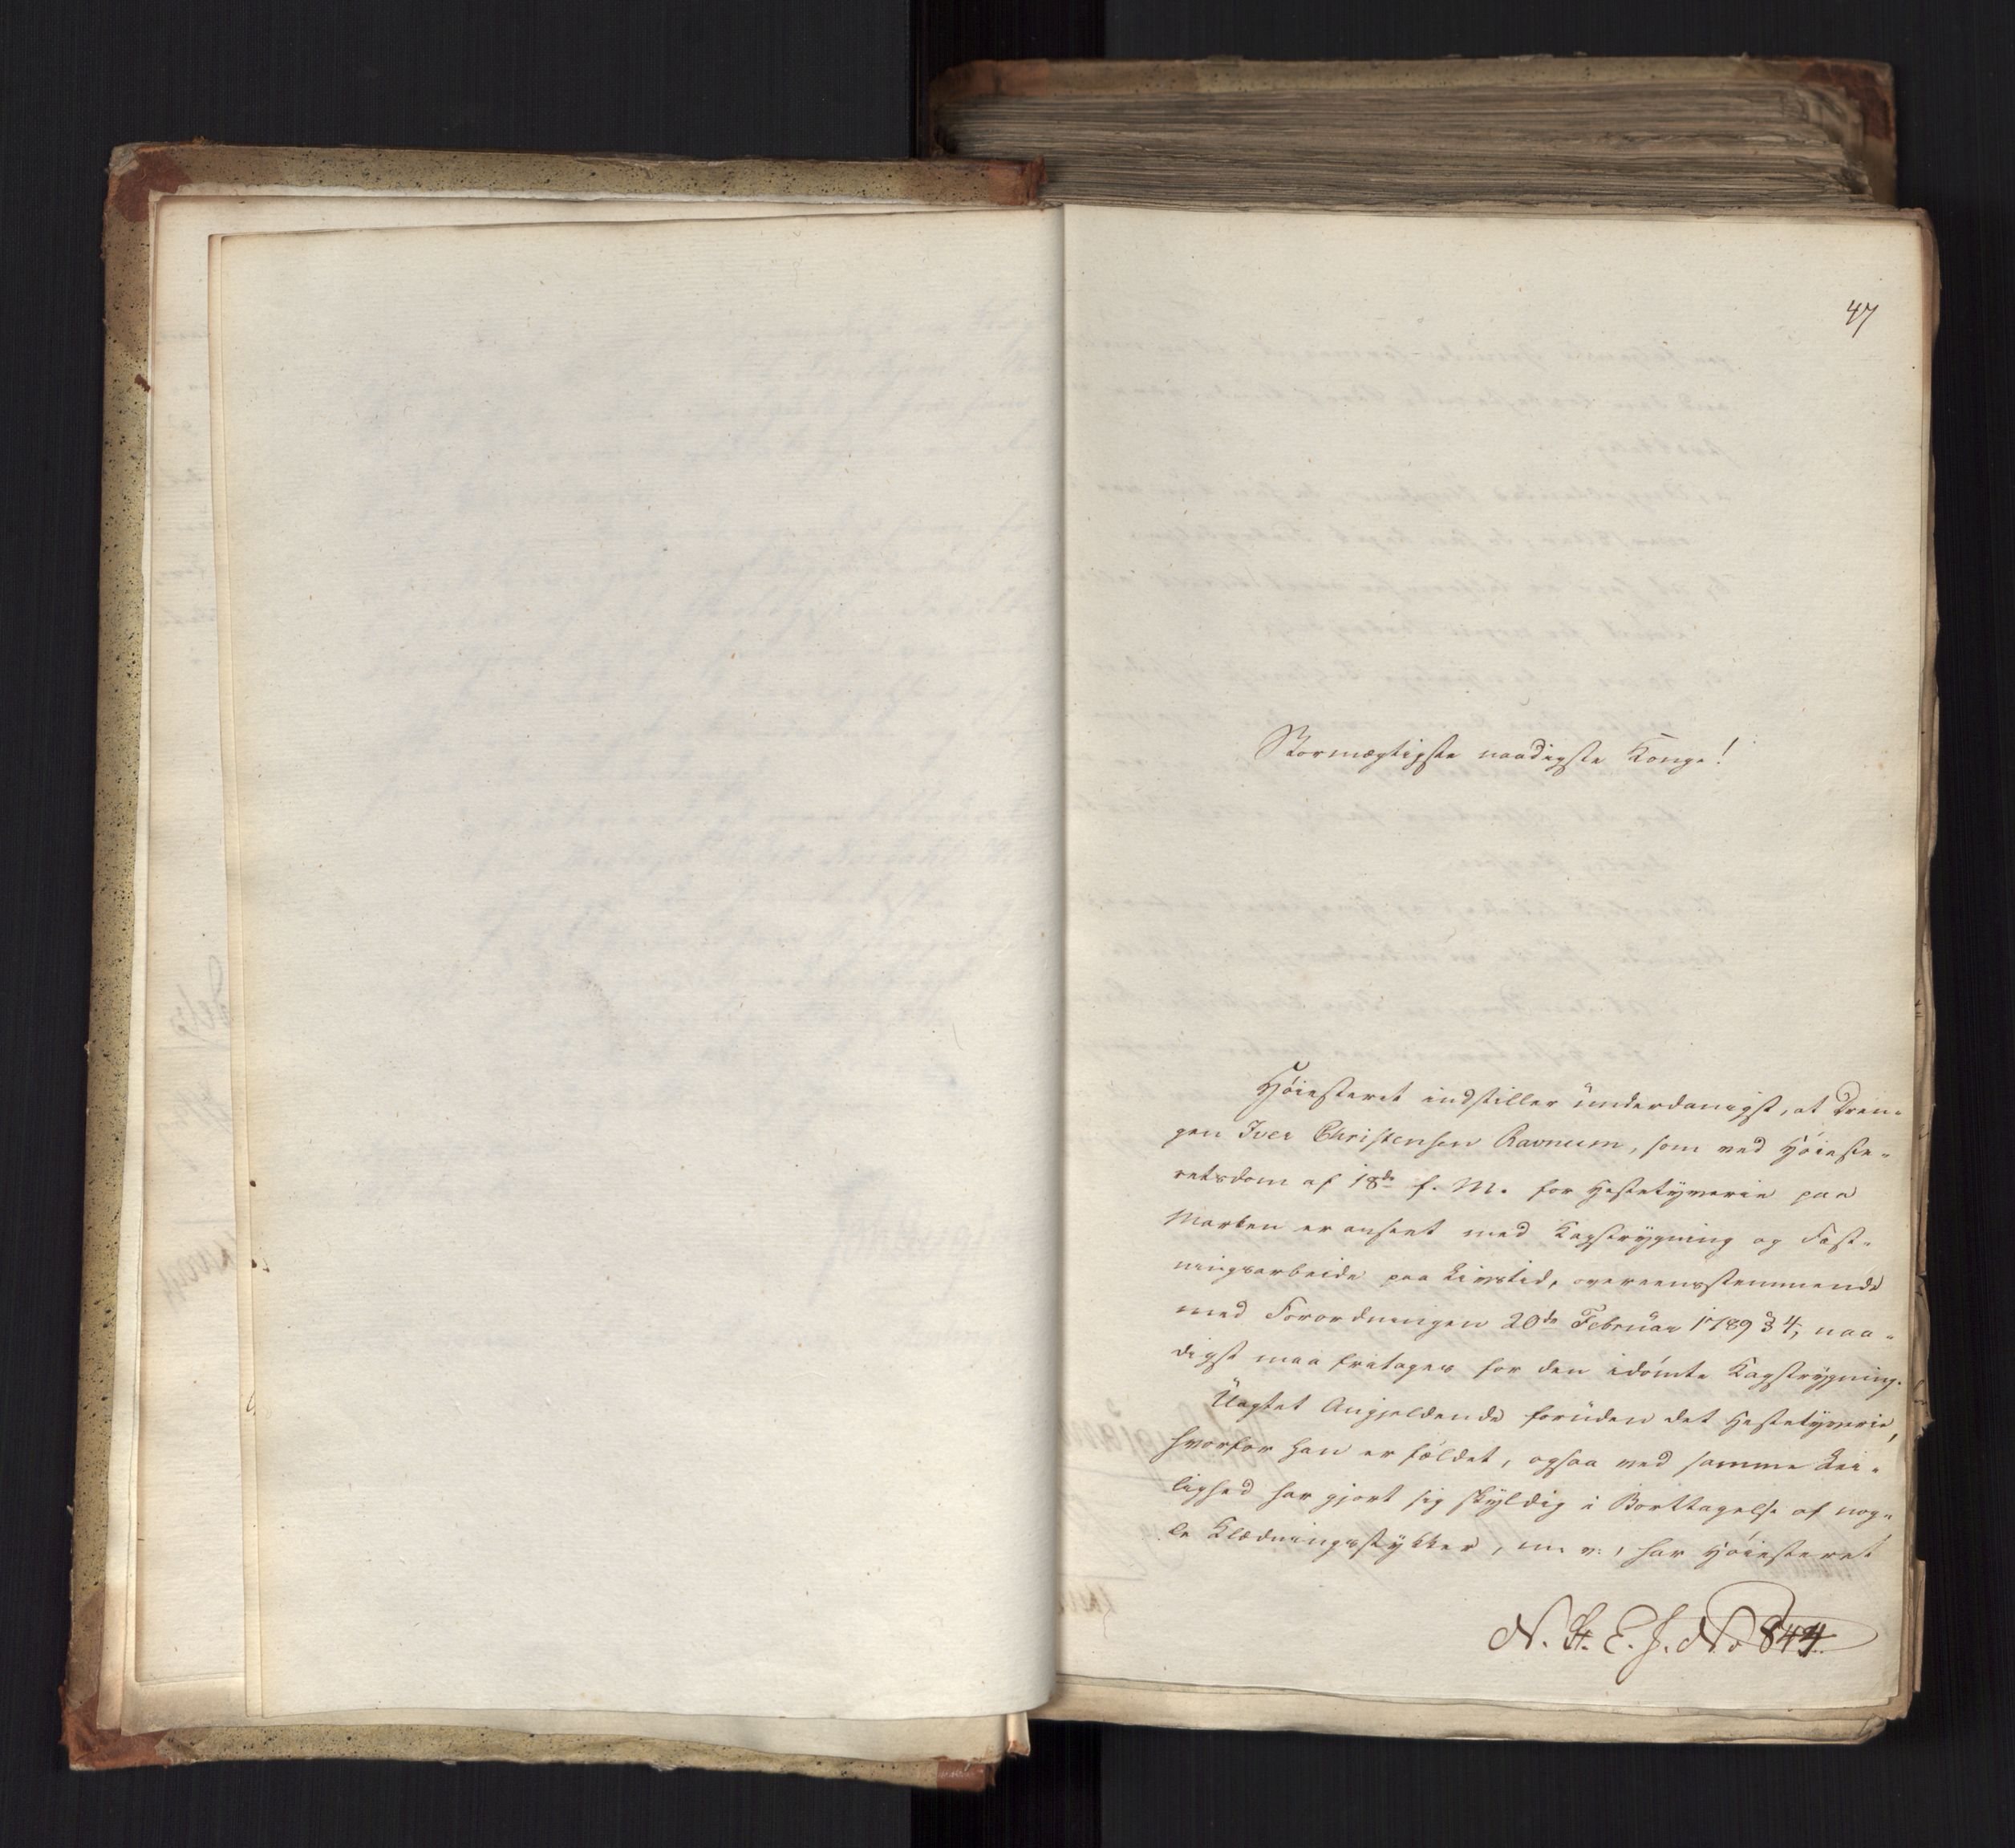 47
Stormægtigste naadigste Konge!
Høiesteret indstiller ünderdanigst, at Dren-
gen Iver Christensen Ravnum, som ved Høieste-
retsdom af 18de f. M. for Hestetyverie paa
Marken er anseet med Kagstrygning og Fæst-
ningsarbeide paa Livstid, overeensstemmende
med Forordningen 20de Februar 1789 § 4, naa-
digst maa fritages for den idømte Kagstrygning.
Üagtet Angjeldende forüden det Hestetyverie,
hvorfor han er fældet, ogsaa ved samme Lei-
lighed har gjort sig skyldig i Borttagelse af nog-
le Klædningsstykker, m. v., har Høiesteret
N. St. E. J. No 844